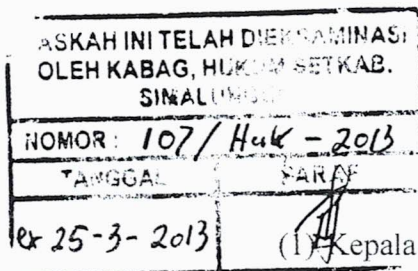 NASKAH INI TELAH DIEKSAMINASI
OLEH KABAG, HUKUM SETKAB.
SIMALUNGUN
NOMOR : 107/ Huk - 2013
TANGGAL PARAF
25-3-2013
(1) Kepala